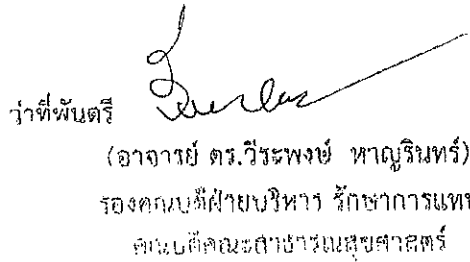 ว่าที่พันตรี
(อาจารย์ ดร.วีระพงษ์ หาญรินทร์)
รองคณบดีฝ่ายบริหาร รักษาการแทน
คณบดีคณะสาธารณสุขศาสตร์